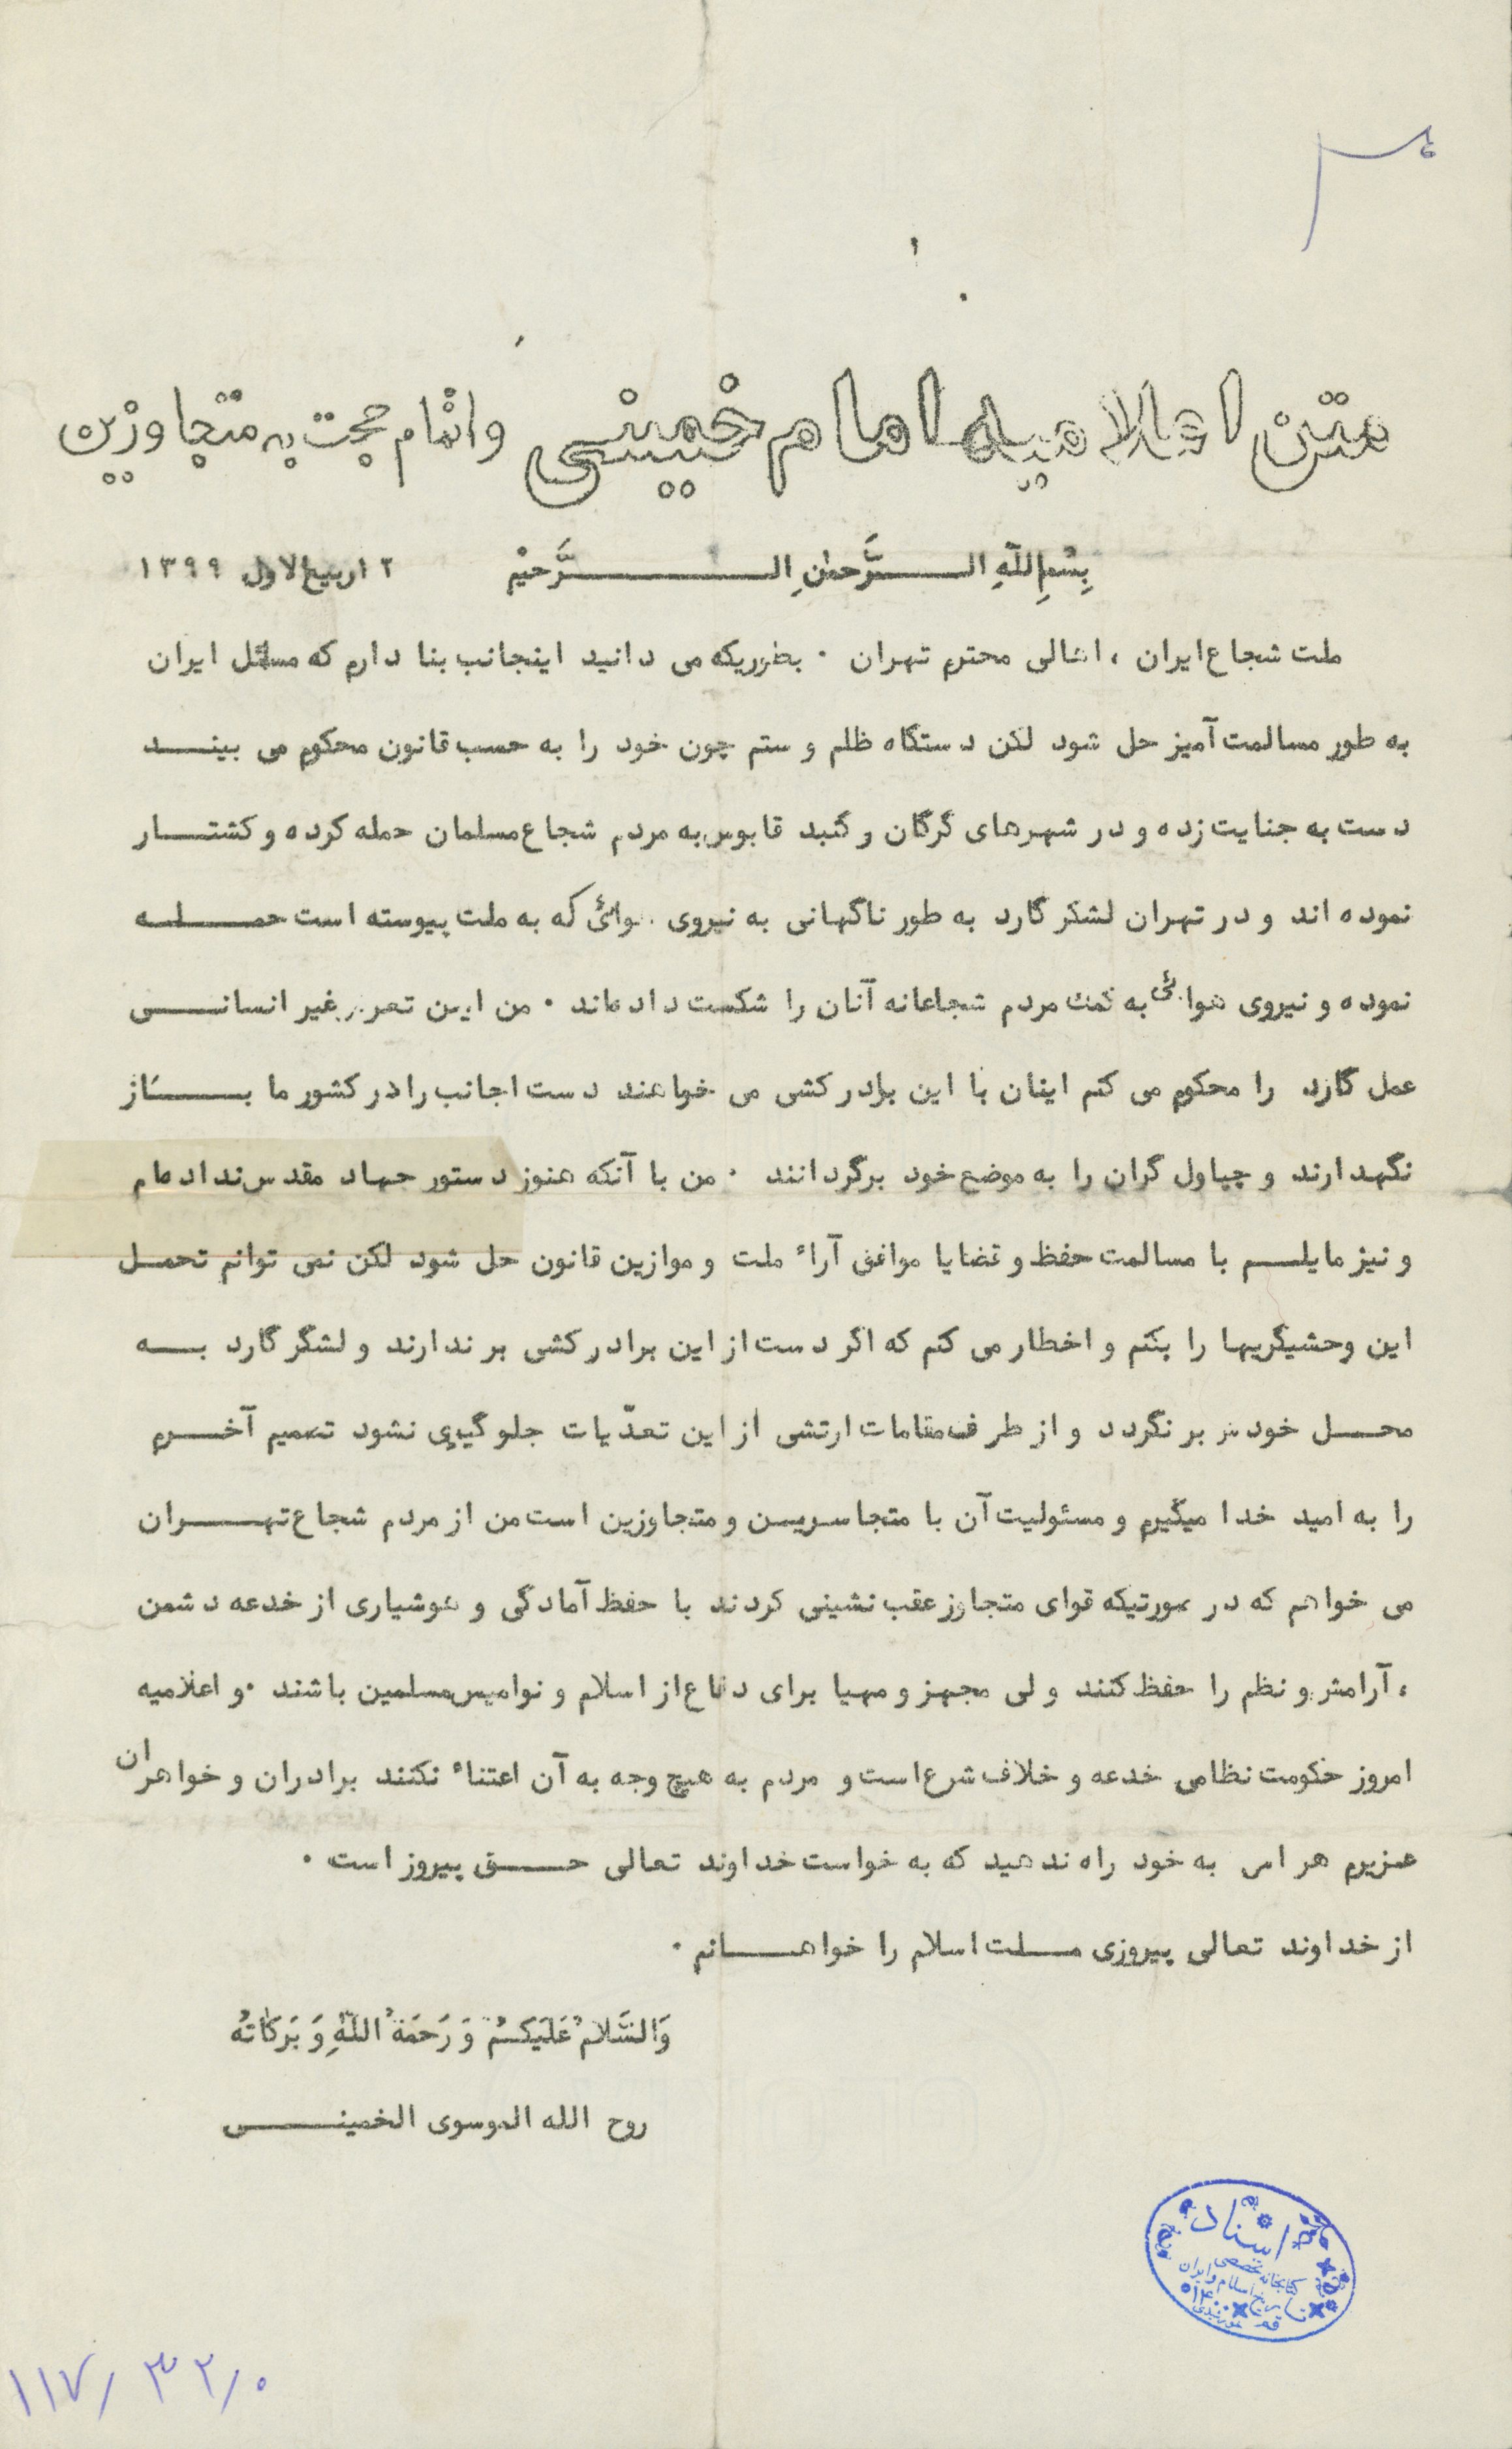 متن اعلامیه امام خمینی و اتمام حجت به متجاوزین
بِسْمِ اللّهِ الرَّحمٰنِ الرَّحیْم
۱۲ ربیع الاول ۱۳۹۹
ملت شجاع ایران ، اهالی محترم تهران ۰ بطوریکه می دانید اینجانب بنا دارم که مسائل ایران
به طور مسالمت آمیز حل شود لکن دستگاه ظلم و ستم چون خود را به حسب قانون محکوم می بینـــد
دست به جنایت زده و در شهرهای گرگان و گنبد قابوس به مردم شجاع مسلمان حمله کرده و کشتـــار
نموده اند و در تهران لشکر گارد به طور ناگهانی به نیروی هوائی که به ملت پیوسته است حمـــلـه
نموده و نیروی هوائی به کمک مردم شجاعانه آنان را شکست داده‌اند ۰ من این تعرض غیر انسانـــی
عمل گارد را محکوم می کنم اینان با این برادر کشی می خواهند دست اجانب را در کشور ما بـــاز
نگهدارند و چپاول گران را به موضع خود برگردانند ۰ من با آنکه هنوز دستور جهاد مقدس نداده‌ام
و نیز مایلـــم با مسالمت حفظ و قضایا موافق آراء ملت و موازین قانون حل شود لکن نمی توانم تحمـل
این وحشیگریها را بکنم و اخطار می کنم که اگر دست از این برادر کشی بر ندارند و لشگر گارد بـــه
محـــل خودش بر نگردد و از طرف مقامات ارتشی از این تعدّیات جلو گیری نشود تصمیم آخـــرم
را به امید خدا میگیرم و مسئولیت آن با متجاسریـن و متجاوزین است من از مردم شجاع تهـــران
می خواهم که در صورتیکه قوای متجاوز عقب نشینی کردند با حفظ آمادگی و هوشیاری از خدعه دشمن
، آرامش و نظم را حفظ کنند ولی مجهز و مهیا برای دفاع از اسلام و نوامیس مسلمین باشند ۰ و اعلامیه
امروز حکومت نظامی خدعه و خلاف شرع است و مردم به هیچ وجه به آن اعتناء نکنند برادران و خواهران
عـزیزم هراس به خود راه ندهید که به خواست خداوند تعالی حـــق پیروز است ۰
از خداوند تعالی پیروزی مـــلت اسلام را خواهـــانم ۰
وَالسَّلامُ عَلَیکُـمْ وَ رَحمَةُ اللّهِ وَ بَرَکاتُه
روح الله الموسوی الخمینـــی
اسناد
کتابخانه تخصصی
تاریخ اسلام و ایران
قم
۱۱۷/ ۳۲/۰